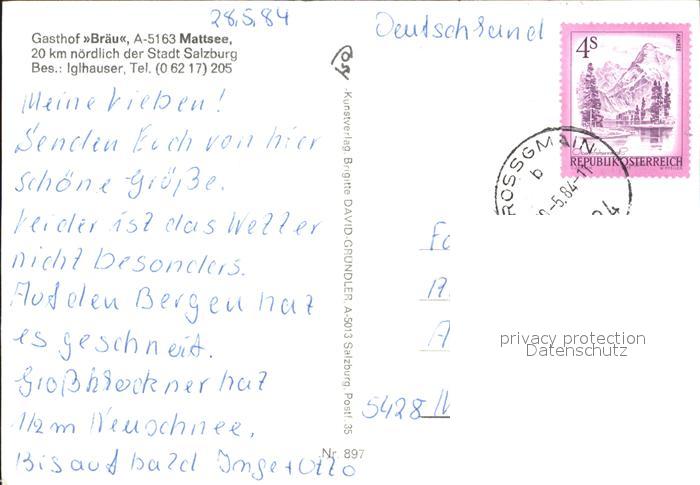 28.5.84
Gasthof »Bräu«, A-5163 Mattsee,
20 km nördlich der Stadt Salzburg
Bes.: Iglhauser, Tel. (0 62 17) 205
Meine Lieben!
Senden Euch von hier
schöne Grüße.
Leider ist das Wetter
nicht besonders.
Auf den Bergen hat
es geschneit.
Großklockner hat
1/2 m Neuschnee.
Bis auf bald Inge + Otto
Kunstverlag Brigitte DAVID-GRÜNDLER, A-5013 Salzburg, Postf. 35
Nr. 897
Deutschland
4S
ALMSEE
REPUBLIK ÖSTERREICH
ROSSGMAIN
b
-5.84-11
5428
privacy protection
Datenschutz